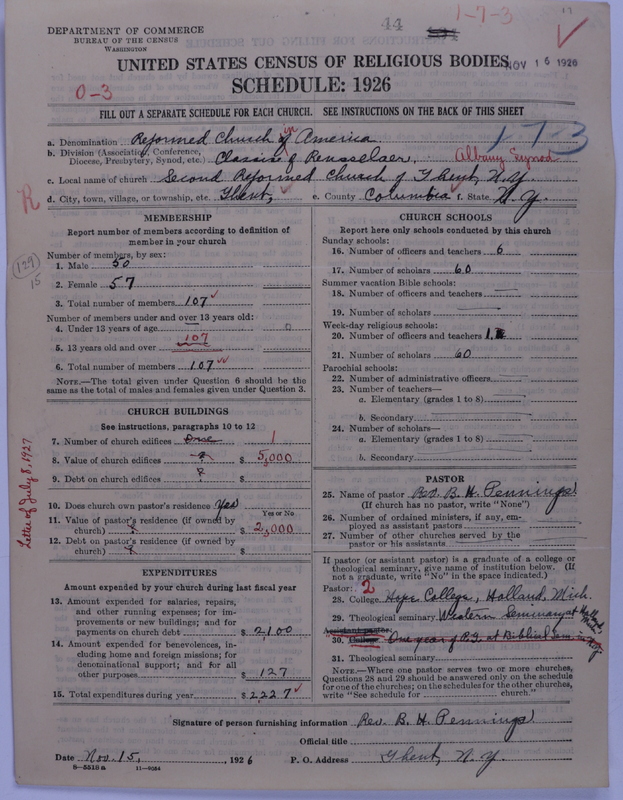 17
44
1-7-3
DEPARTMENT OF COMMERCE
BUREAU OF THE CENSUS
WASHINGTON
UNITED STATES CENSUS OF RELIGIOUS BODIES
NOV 16 1926
SCHEDULE: 1926
0-3
FILL OUT A SEPARATE SCHEDULE FOR EACH CHURCH. SEE INSTRUCTIONS ON THE BACK OF THIS SHEET
173
a. Denomination Reformed Church in America
b. Division (Association, Conference, Diocese, Presbytery, Synod, etc.) Classis of Rensselaer, Albany Synod
c. Local name of church Second Reformed Church of Ghent, N.Y.
R
d. City, town, village, or township, etc. Ghent, e. County Columbia f. State N.Y.
MEMBERSHIP
Report number of members according to definition of
member in your church
Number of members, by sex:
1. Male 50
129
15
2. Female 57
3. Total number of members 107
Number of members under and over 13 years old:
4. Under 13 years of age 0
5. 13 years old and over 107
6. Total number of members 107
NOTE.—The total given under Question 6 should be the
same as the total of males and females given under Question 3.
CHURCH BUILDINGS
See instructions, paragraphs 10 to 12
7. Number of church edifices One 1
8. Value of church edifices ? $ 5,000
9. Debt on church edifices ? $
Letter of July 8, 1927
10. Does church own pastor's residence Yes
Yes or No
11. Value of pastor's residence (if owned by
church) ? $ 2,000
12. Debt on pastor's residence (if owned by
church) ? $
EXPENDITURES
Amount expended by your church during last fiscal year
13. Amount expended for salaries, repairs,
and other running expenses; for im-
provements or new buildings; and for
payments on church debt $ 2100
14. Amount expended for benevolences, in-
cluding home and foreign missions; for
denominational support; and for all
other purposes $ 127
15. Total expenditures during year $ 2227
CHURCH SCHOOLS
Report here only schools conducted by this church
Sunday schools:
16. Number of officers and teachers 6
17. Number of scholars 60
Summer vacation Bible schools:
18. Number of officers and teachers
19. Number of scholars
Week-day religious schools:
20. Number of officers and teachers 1
21. Number of scholars 60
Parochial schools:
22. Number of administrative officers
23. Number of teachers—
a. Elementary (grades 1 to 8)
b. Secondary
24. Number of scholars—
a. Elementary (grades 1 to 8)
b. Secondary
PASTOR
25. Name of pastor Rev. B. H. Pennings
(If church has no pastor, write "None")
26. Number of ordained ministers, if any, em-
ployed as assistant pastors
27. Number of other churches served by the
pastor or his assistants
If pastor (or assistant pastor) is a graduate of a college or
theological seminary, give name of institution below. (If
not a graduate, write "No" in the space indicated.)
Pastor: 2
28. College Hope College, Holland, Mich.
29. Theological seminary Western Seminary at Holland
Assistant pastor:
30. One year of P.G. at Biblical Sem. in N.Y.
31. Theological seminary
NOTE.—Where one pastor serves two or more churches,
Questions 28 and 29 should be answered only on the schedule
for one of the churches; on the schedules for the other churches,
write "See schedule for church."
Signature of person furnishing information Rev. B. H. Pennings
Official title
Date Nov. 15, 1926 P. O. Address Ghent, N.Y.
8—5518a 11—8054